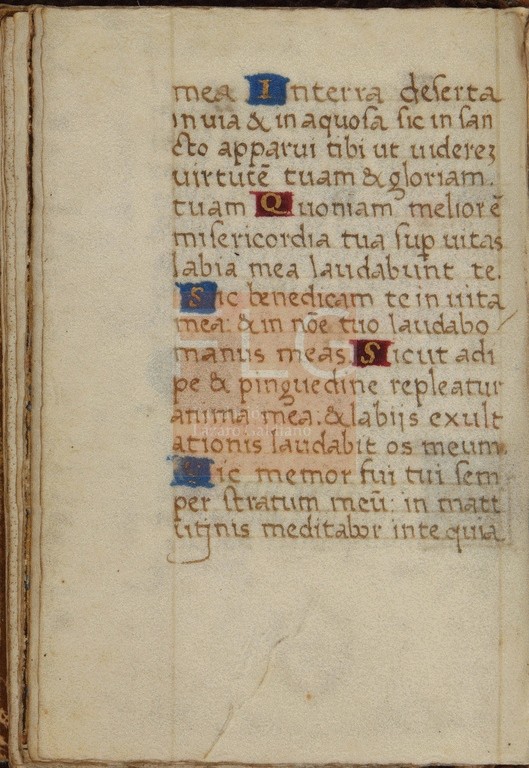 mea Interra deserta
inuia & inaquosa sic in san
cto apparui tibi ut uiderez
uirtutē tuam & gloriam.
tuam Quoniam meliorē
misericordia tua sup uitas
labia mea laudabunt te.
Sic benedicam te in uita
mea: & in nōe tuo laudabo
manus meas. Sicut adi
pe & pinguedine repleatur
anima mea. & labijs exult
ationis laudabit os meum.
Sic memor fui tui sem
per stratum meū: in matt
utinis meditabor inte quia
FLG
Lázaro Galdiano